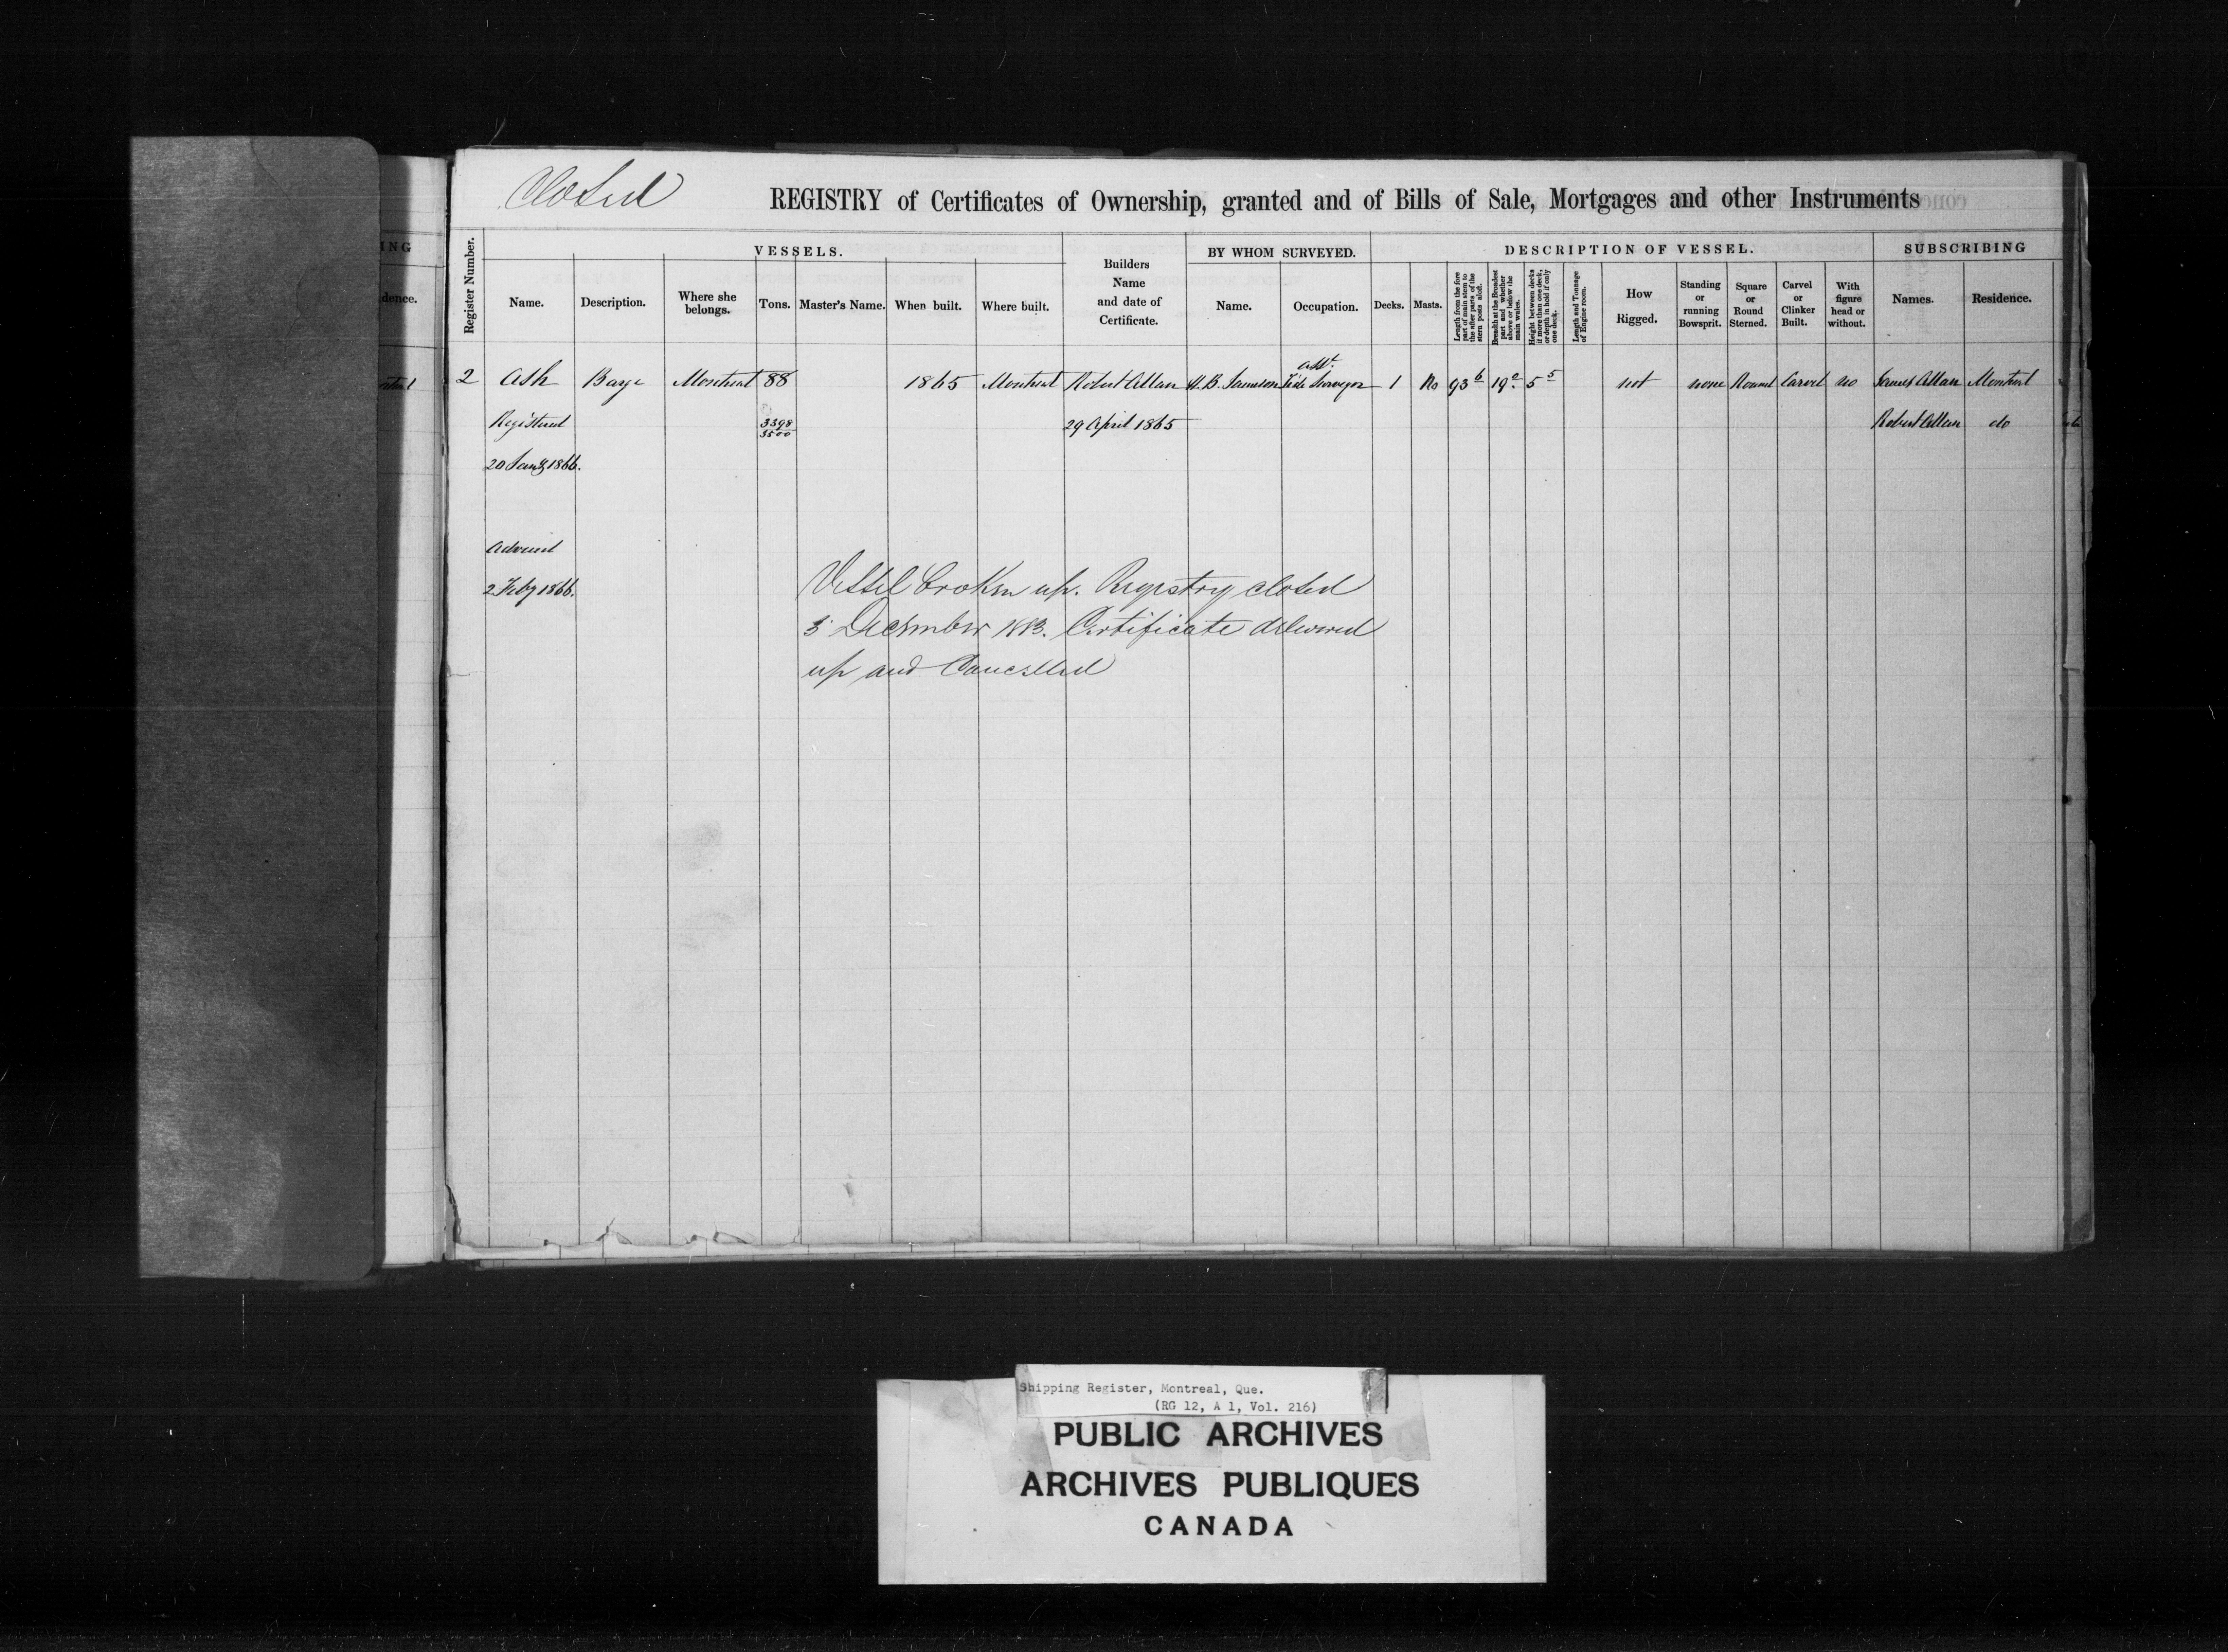 Closed
REGISTRY of Certificates of Ownership, granted and of Bills of Sale, Mortgages and other Instruments
ING
dence.
Register Number.
VESSELS.
Name.
Description.
Where she belongs.
Tons.
Master's Name.
When built.
Where built.
Builders Name and date of Certificate.
BY WHOM SURVEYED.
Name.
Occupation.
DESCRIPTION OF VESSEL.
Decks.
Masts.
Length from the fore part of main stem to the after parts of the stern post aloft.
Breadth at the Broadest part and whether above or below the main wales.
Height between decks if more than one deck, or depth in hold if only one deck.
Length and Tonnage of Engine room.
How Rigged.
Standing or running Bowsprit.
Square or Round Sterned.
Carvel or Clinker Built.
With figure head or without.
SUBSCRIBING
Names.
Residence.
2 Ash Barge Montreal 88 1865 Montreal Robert Allan H.B. Jameson Asst. Tide Surveyor 1 No 93 6 19 0 5 5 not none Round Carvel no James Allan Montreal
Registered 3398/3500 29 April 1865 Robert Allan do
20 Jany 1866.
Advised
2 Feby 1866.
Vessel broken up. Registry closed
3 December 1883. Certificate delivered
up and Cancelled
Shipping Register, Montreal, Que.
(RG 12, A 1, Vol. 216)
PUBLIC ARCHIVES
ARCHIVES PUBLIQUES
CANADA